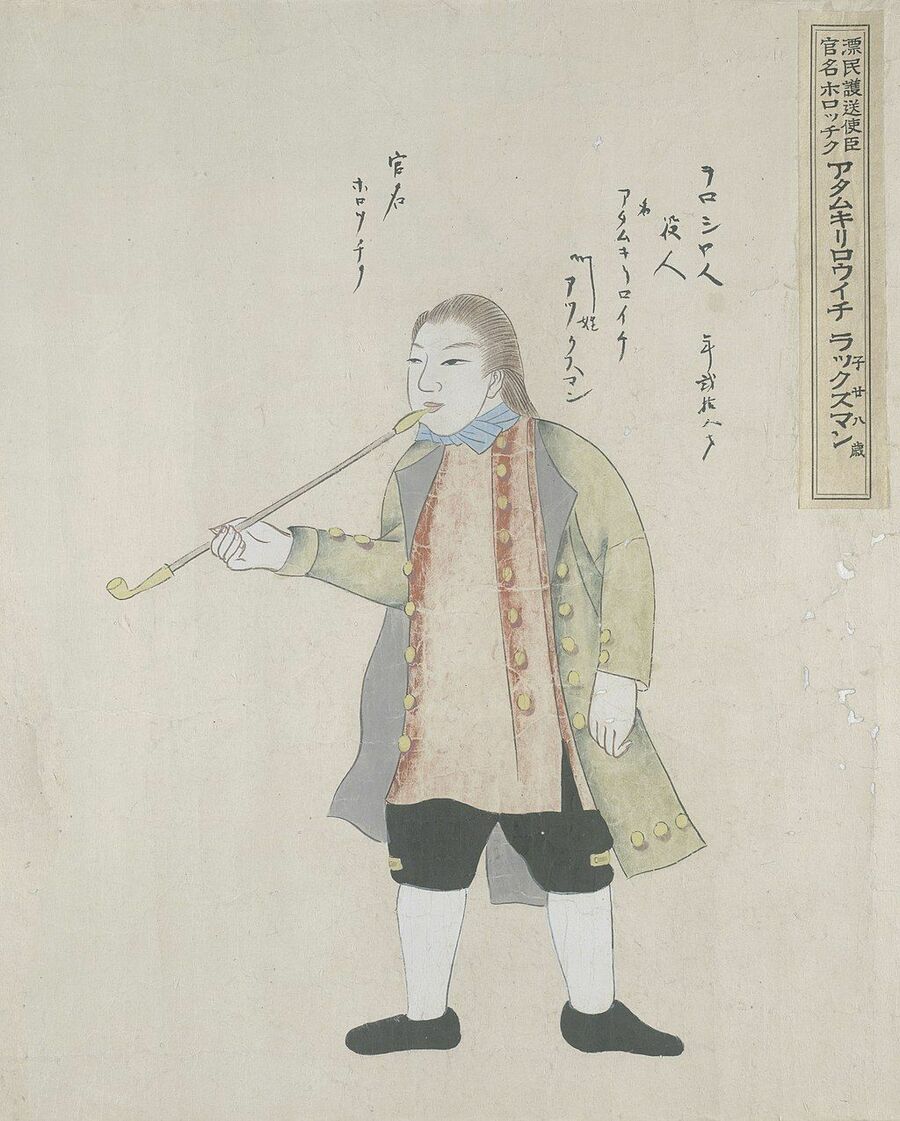 漂民護送使臣
官名 ホロッチク
アタムキリロウイチ ラックズマン
子廿八歳
ヲロシヤ人 年弐拾八才
役人
名 アタムキリロイチ
姓 ラツクスマン
官名
ホロツチク